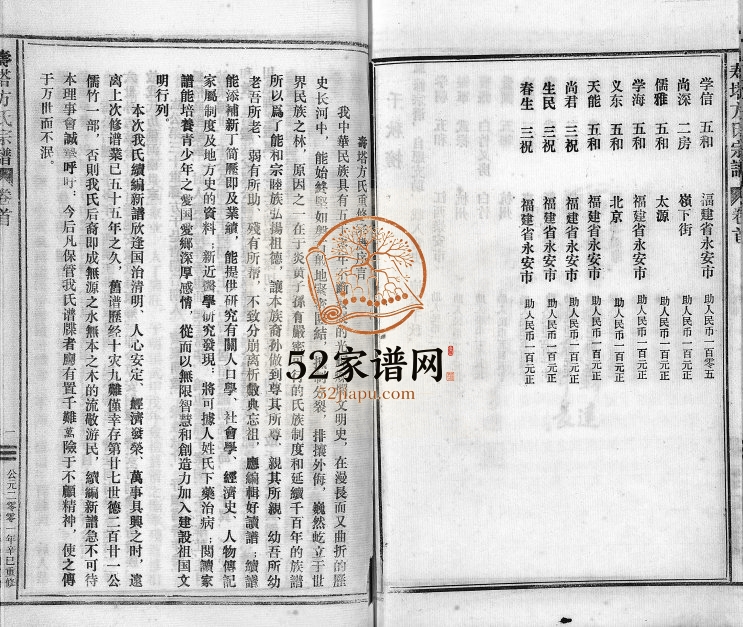 春塔方氏宗譜 卷首
学信 五和 福建省永安市 助人民币一百零五
尚深 二房 嶺下街 助人民币一百元正
儒雅 五和 太源 助人民币一百元正
学海 五和 福建省永安市 助人民币一百元正
义东 五和 北京 助人民币一百元正
天能 五和 福建省永安市 助人民币一百元正
尚君 三祝 福建省永安市 助人民币一百元正
生民 三祝 福建省永安市 助人民币一百元正
春生 三祝 福建省永安市 助人民币一百元正
壽塔方氏重修 序言
我中華民族具有五 的光 文明史，在漫長而又曲折的歷
史长河中，能始終堅如磐 地 团結， 分裂，排擯外侮，巍然屹立于世
界民族之林，原因之一在于炎黄子孫有嚴密 行的氏族制度和延續千百年的族譜
所以爲了能和宗睦族弘揚祖德，讓本族裔孙做到尊其所尊，親其所親、幼吾所幼
老吾所老、弱有所助、殘有所帮，不致分崩离忻數典忘祖，應編輯好讀譜；續譜
能添補新丁简歷即及業績，能提供研究有關人口學、社會學、經濟史、人物傳記
家屬制度及地方史的资料；新近醫學研究發現：將可據人姓氏下藥治病；閱讀家
譜能培養青少年之爱国爱鄉深厚感情，從而以無限智慧和創造力加入建設祖国文
明行列。
本次我氏續編新譜欣逢国治清明、人心安定、經濟發榮、萬事具興之时，遠
离上次修谱業已五十五年之久，舊谱歷经十灾九難僅幸存第廿七世德二百廿一公
儒竹一部，否則我氏后裔即成無源之水無本之木的流散游民，續編新譜急不可待
本理事會誠摯呼吁，今后凡保管我氏谱牒者應有置千難萬險于不顧精神，使之傳
于万世而不泯。
壽塔方氏宗譜 卷首
公元二零零一年辛巳重修
52家谱网
52jiapu.com